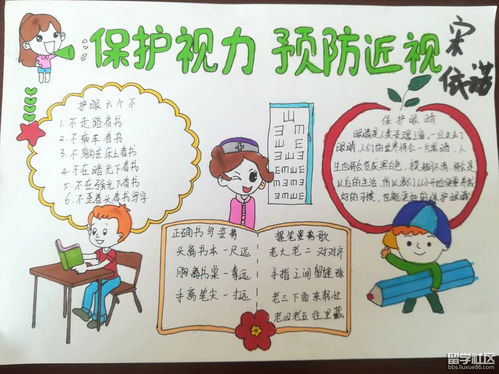 保护视力 预防近视
宋
依诺
护眼六个不
1.不走路看书
2.不乘车看书
3.不躺在床上看书
4.不在暗光下看书
5.不在强光下看书
6.不歪着头看书写字
保护眼睛
眼睛是心灵之窗,一旦失去了
眼睛,人们的世界将会一片黑暗,人
生也将会变成黑白色
以后的生活,所以我们从小开始便要养成
好的习惯,也能更好的保护眼睛
正确书写姿势
头离书本一尺远
胸离书桌一拳远
手离笔尖一寸远
握笔姿势歌
老大老二对对齐
手指之间
老三下面来帮忙
老四老五往里藏
留学社区
bbs.liuxue86.com